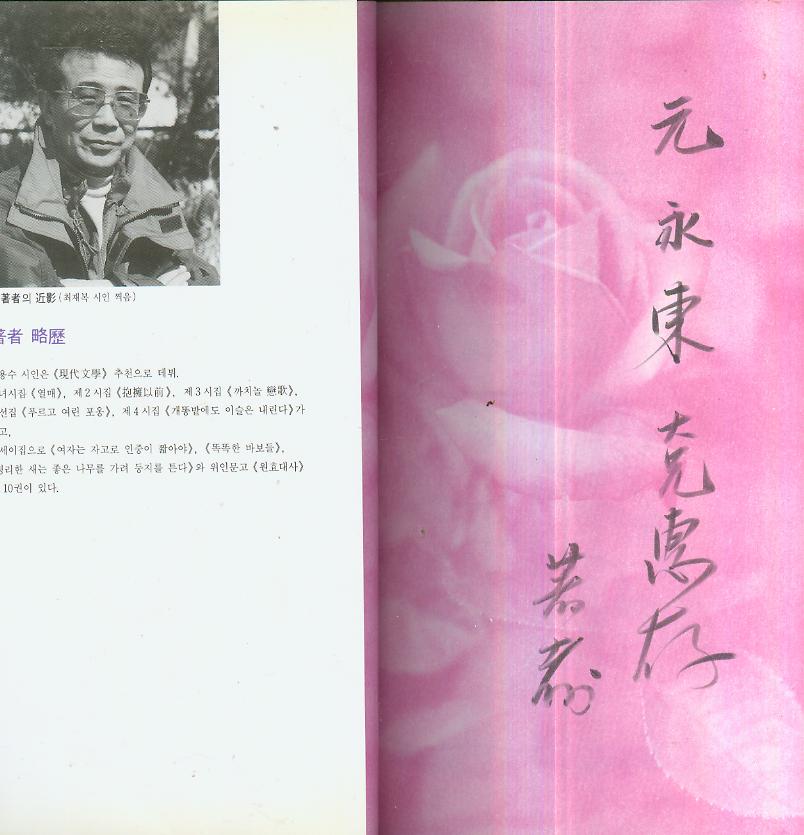 著者의 近影(최재복 시인 찍음)
著者 略歷
용수 시인은 《現代文學》 추천으로 데뷔.
녀시집 《열매》, 제2시집 《抱擁以前》, 제3시집 《까치놀 戀歌》,
선집 《푸르고 여린 포옹》, 제4시집 《개똥밭에도 이슬은 내린다》가
고,
세이집으로 《여자는 자고로 인중이 짧아야》, 《똑똑한 바보들》,
영리한 새는 좋은 나무를 가려 둥지를 튼다》와 위인문고 《원효대사》
10권이 있다.
元永東 大兄 惠存
著